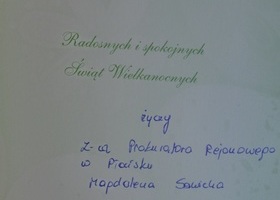 Radosnych i spokojnych
Świąt Wielkanocnych
życzy
Z-ca Prokuratora Rejonowego
w Płońsku
Magdalena Sawicka